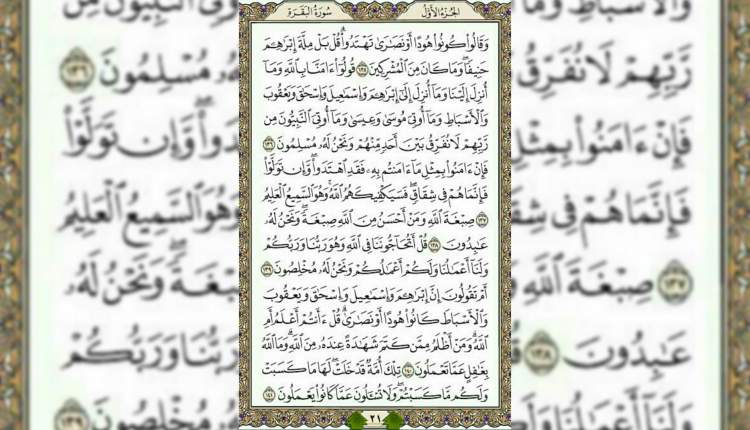 سُورَةُ البَقَرَةِ
الجُزْءُ الأَوَّلُ
وَقَالُوا۟ كُونُوا۟ هُودًا أَوْ نَصَٰرَىٰ تَهْتَدُوا۟ ۗ قُلْ بَلْ مِلَّةَ إِبْرَٰهِـۧمَ
حَنِيفًا ۖ وَمَا كَانَ مِنَ ٱلْمُشْرِكِينَ ١٣٥ قُولُوٓا۟ ءَامَنَّا بِٱللَّهِ وَمَآ
أُنزِلَ إِلَيْنَا وَمَآ أُنزِلَ إِلَىٰٓ إِبْرَٰهِـۧمَ وَإِسْمَٰعِيلَ وَإِسْحَٰقَ وَيَعْقُوبَ
وَٱلْأَسْبَاطِ وَمَآ أُوتِىَ مُوسَىٰ وَعِيسَىٰ وَمَآ أُوتِىَ ٱلنَّبِيُّونَ مِن
رَّبِّهِمْ لَا نُفَرِّقُ بَيْنَ أَحَدٍ مِّنْهُمْ وَنَحْنُ لَهُۥ مُسْلِمُونَ ١٣٦
فَإِنْ ءَامَنُوا۟ بِمِثْلِ مَآ ءَامَنتُم بِهِۦ فَقَدِ ٱهْتَدَوا۟ ۖ وَّإِن تَوَلَّوْا۟
فَإِنَّمَا هُمْ فِى شِقَاقٍ ۖ فَسَيَكْفِيكَهُمُ ٱللَّهُ ۚ وَهُوَ ٱلسَّمِيعُ ٱلْعَلِيمُ
١٣٧ صِبْغَةَ ٱللَّهِ ۖ وَمَنْ أَحْسَنُ مِنَ ٱللَّهِ صِبْغَةً ۖ وَنَحْنُ لَهُۥ
عَٰبِدُونَ ١٣٨ قُلْ أَتُحَآجُّونَنَا فِى ٱللَّهِ وَهُوَ رَبُّنَا وَرَبُّكُمْ
وَلَنَآ أَعْمَٰلُنَا وَلَكُمْ أَعْمَٰلُكُمْ وَنَحْنُ لَهُۥ مُخْلِصُونَ ١٣٩
أَمْ تَقُولُونَ إِنَّ إِبْرَٰهِـۧمَ وَإِسْمَٰعِيلَ وَإِسْحَٰقَ وَيَعْقُوبَ
وَٱلْأَسْبَاطَ كَانُوا۟ هُودًا أَوْ نَصَٰرَىٰ ۗ قُلْ ءَأَنتُمْ أَعْلَمُ أَمِ
ٱللَّهُ ۗ وَمَنْ أَظْلَمُ مِمَّن كَتَمَ شَهَٰدَةً عِندَهُۥ مِنَ ٱللَّهِ ۗ وَمَا ٱللَّهُ
بِغَٰفِلٍ عَمَّا تَعْمَلُونَ ١٤٠ تِلْكَ أُمَّةٌ قَدْ خَلَتْ ۖ لَهَا مَا كَسَبَتْ
وَلَكُم مَّا كَسَبْتُمْ ۖ وَلَا تُسْـَٔلُونَ عَمَّا كَانُوا۟ يَعْمَلُونَ ١٤١
٢١